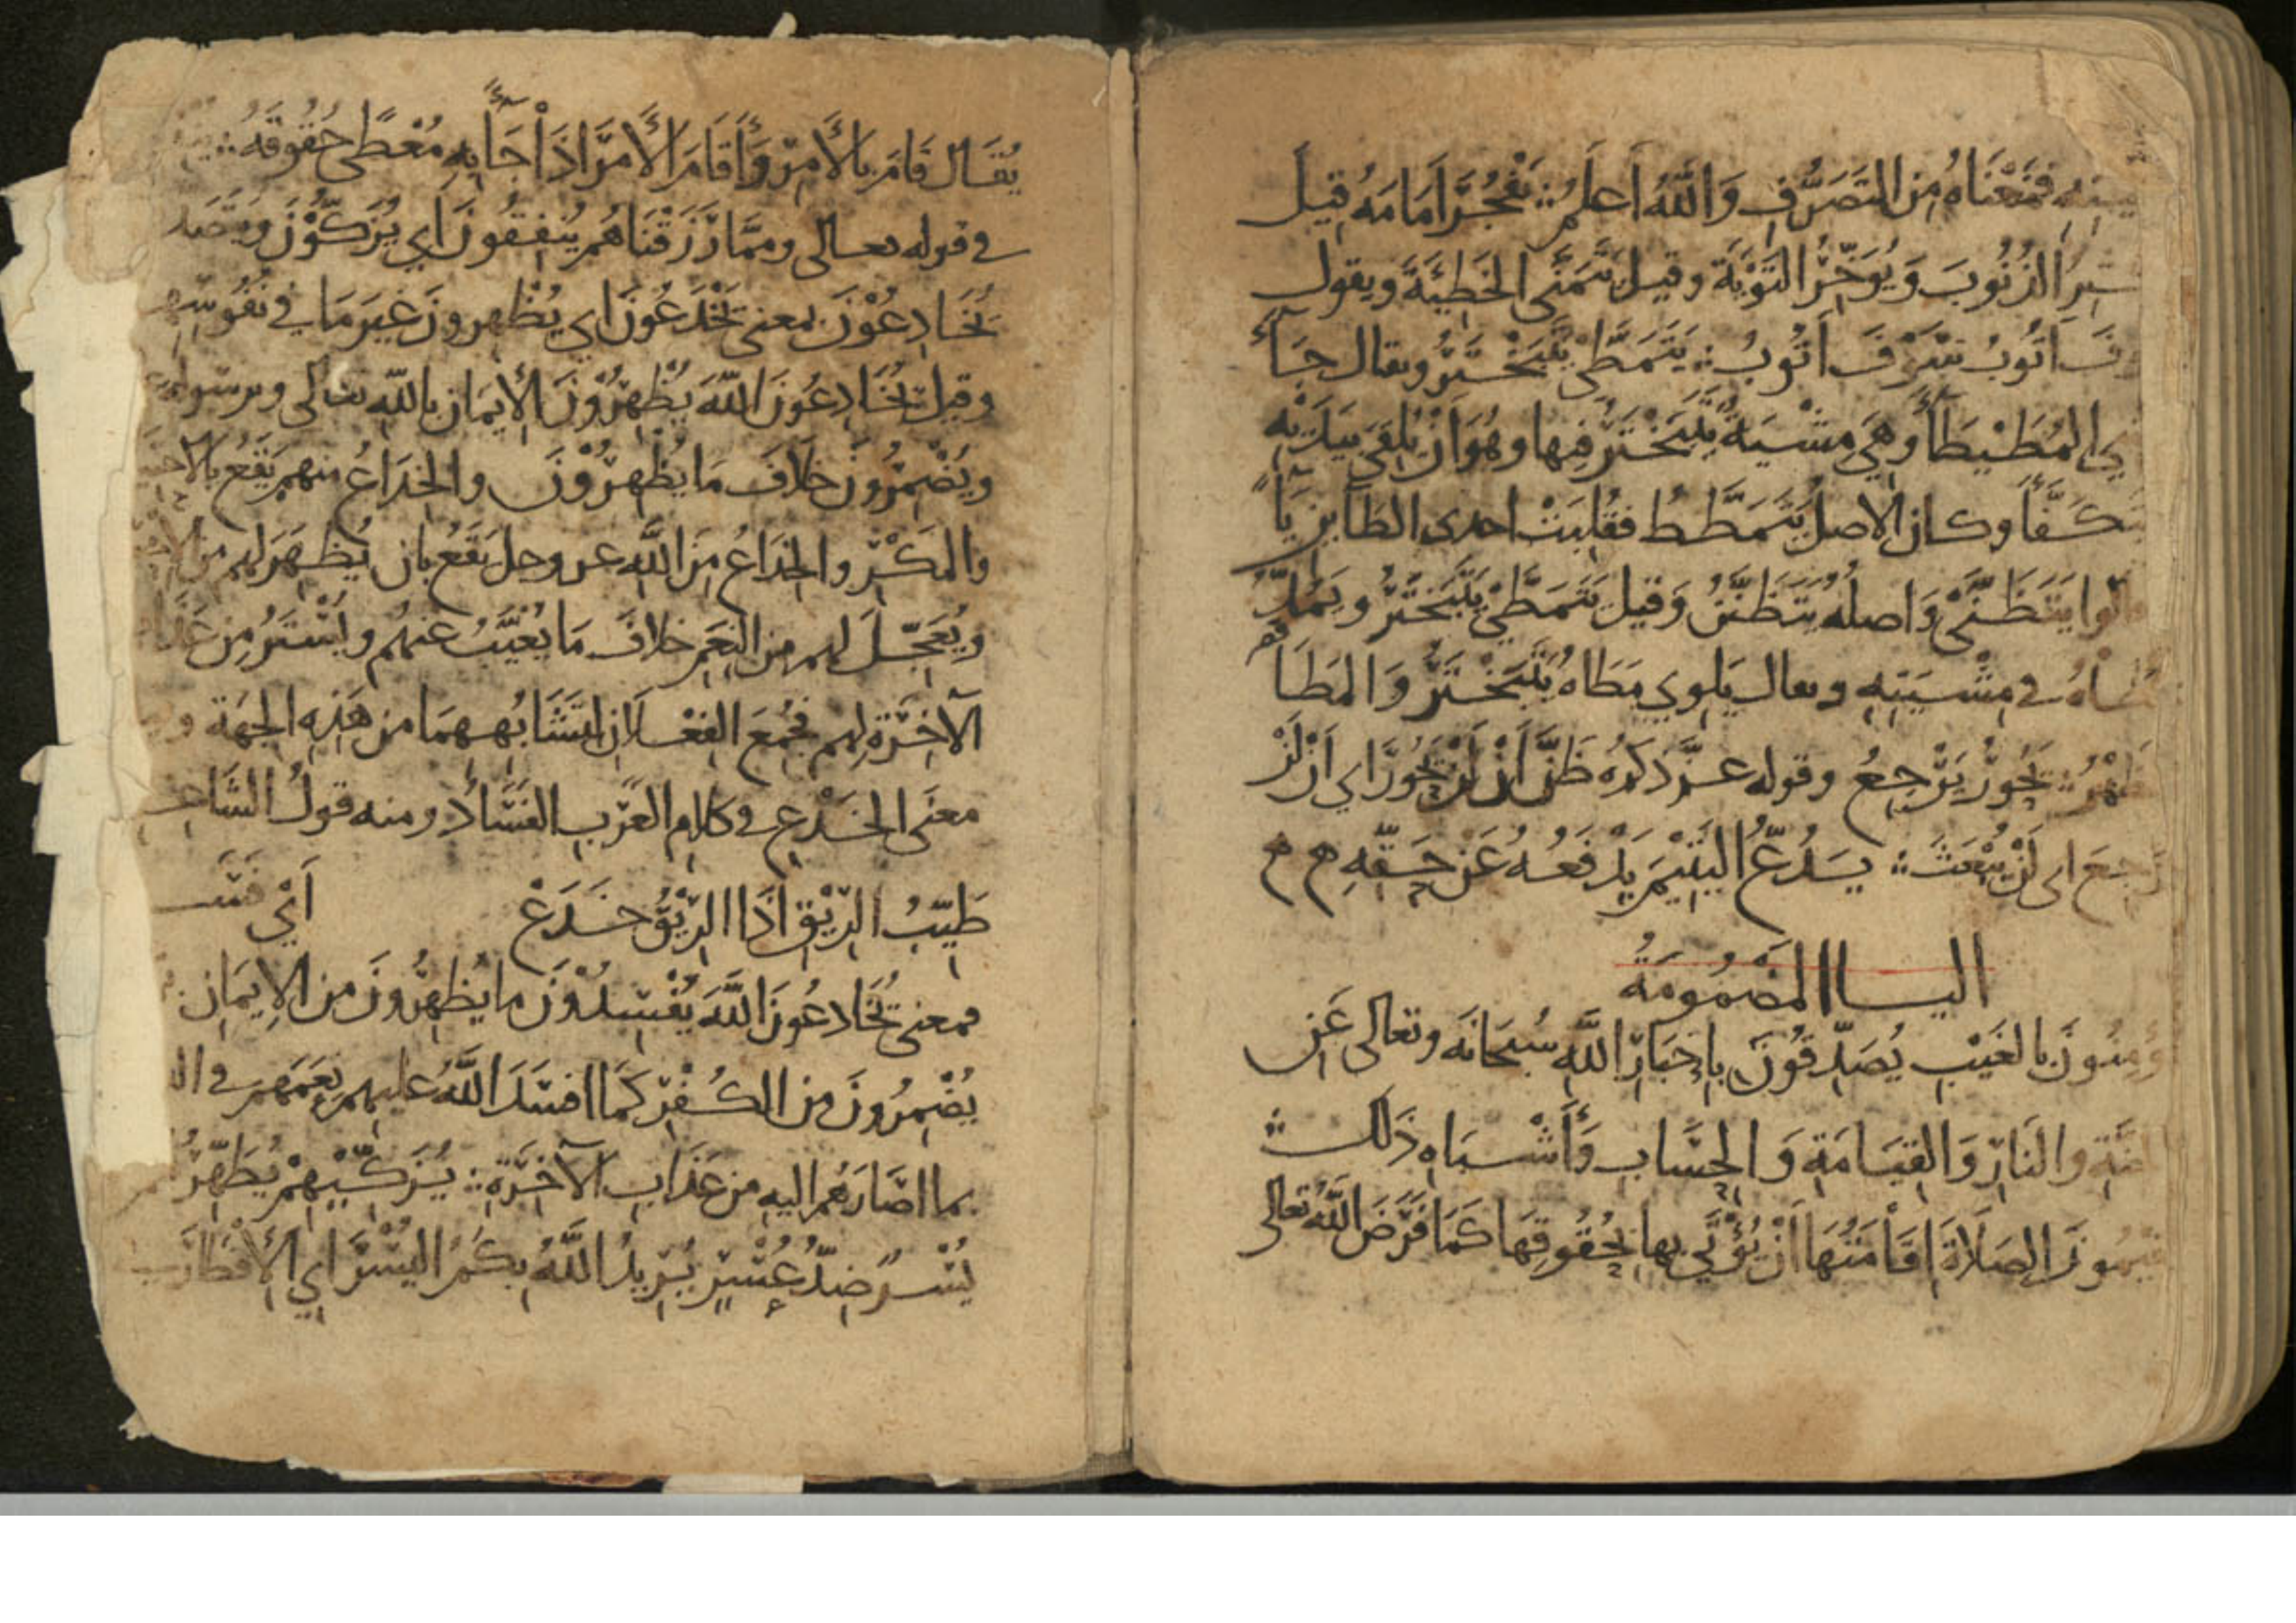 فمنعناه من التصرف والله أعلم ∴ يَفْجُرَ أَمَامَهُ قيل
الذنوب ويؤخر التوبة وقيل يتمنى الخطية ويقول
أتوب سوف أتوب ∴ يتمطى يتبختر ويقال جاء
المطيطاء وهي مشية يتبختر فيها وهو أن يلقي بيديه
يتكفأ وكان الاصل يتمطط فقلبت احدى الطائين ياء
يتظنى واصله يتظنن وقيل يتمطى يتبختر ويمد
مطاه في مشيته ويقال يلوي مطاه يتبختر والمطا
الظهر ∴ يحور يرجع وقوله عز ذكره ظن أن لن يحور اي ان لن
يرجع اي لن يبعث ∴ يدع اليتيم يدفعه عن حقه م م
اليا المضمومة
يؤمنون بالغيب يصدقون باخبار الله سبحانه وتعالى عن
الجنة والنار والقيامة والحساب وأشباه ذلك ∴
يقيمون الصلاة إقامتها أن يؤتى بها بحقوقها كما فرض الله تعالى
يقال قام بالأمر وأقام الأمر اذا جاء به معطى حقوقه ∴
في قوله تعالى ومما رزقناهم ينفقون اي يزكون
يخادعون بمعنى يخدعون اي يظهرون غير ما في نفوسهم
وقيل يخادعون الله يظهرون الإيمان بالله تعالى وبرسوله
ويضمرون خلاف ما يظهرون والخداع منهم يقع
والمكر والخداع من الله عز وجل يقع بان يظهر لهم من
ويعجل لهم من النعم خلاف ما يغيب عنهم ويستر من عذاب
الآخرة لهم فجمع الفعلان لتشابههما من هذه الجهة
معنى الخدع في كلام العرب الفساد ومنه قول الشاعر
طيب الريق اذا الريق خدع أي فسد
فمعنى يخادعون الله يفسدون ما يظهرون من الإيمان
يضمرون من الكفر كما افسد الله عليهم نعمهم في
بما اصارهم اليه من عذاب الآخرة ∴ يزكيهم يطهرهم
يسر ضد عسر يريد الله بكم اليسر اي الإفطار